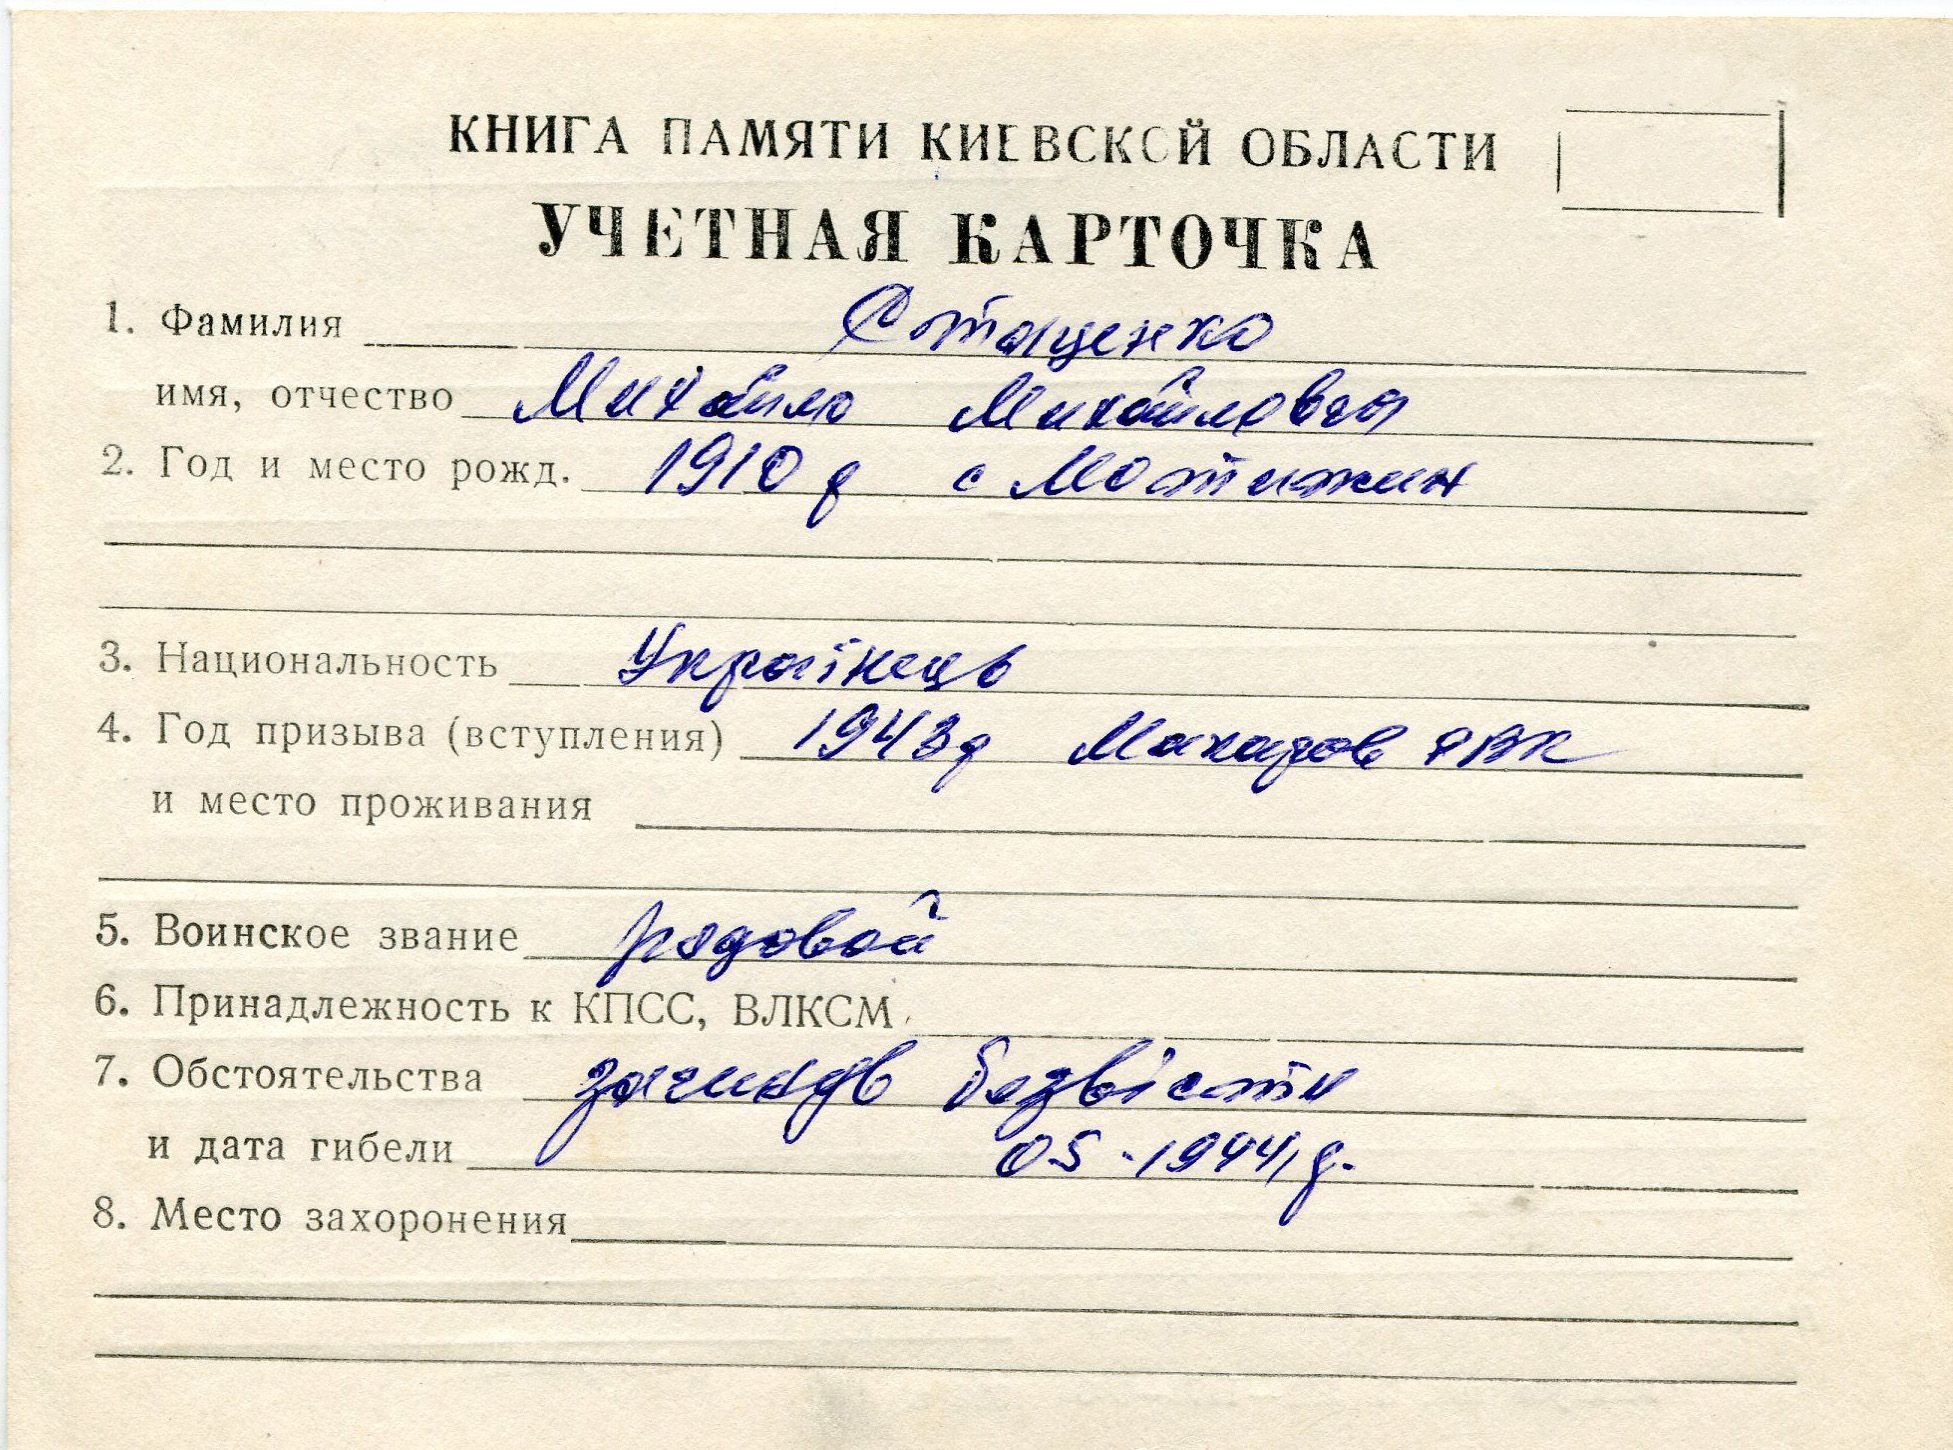 КНИГА ПАМЯТИ КИЕВСКОЙ ОБЛАСТИ
УЧЕТНАЯ КАРТОЧКА
1. Фамилия Стаценко
имя, отчество Михайло Михайлович
2. Год и место рожд. 1910 р с Мотижин
3. Национальность Українець
4. Год призыва (вступления) 1943р Макаров РВК
и место проживания
5. Воинское звание рядовой
6. Принадлежность к КПСС, ВЛКСМ
7. Обстоятельства загинув безвісти
и дата гибели 05.1944р.
8. Место захоронения